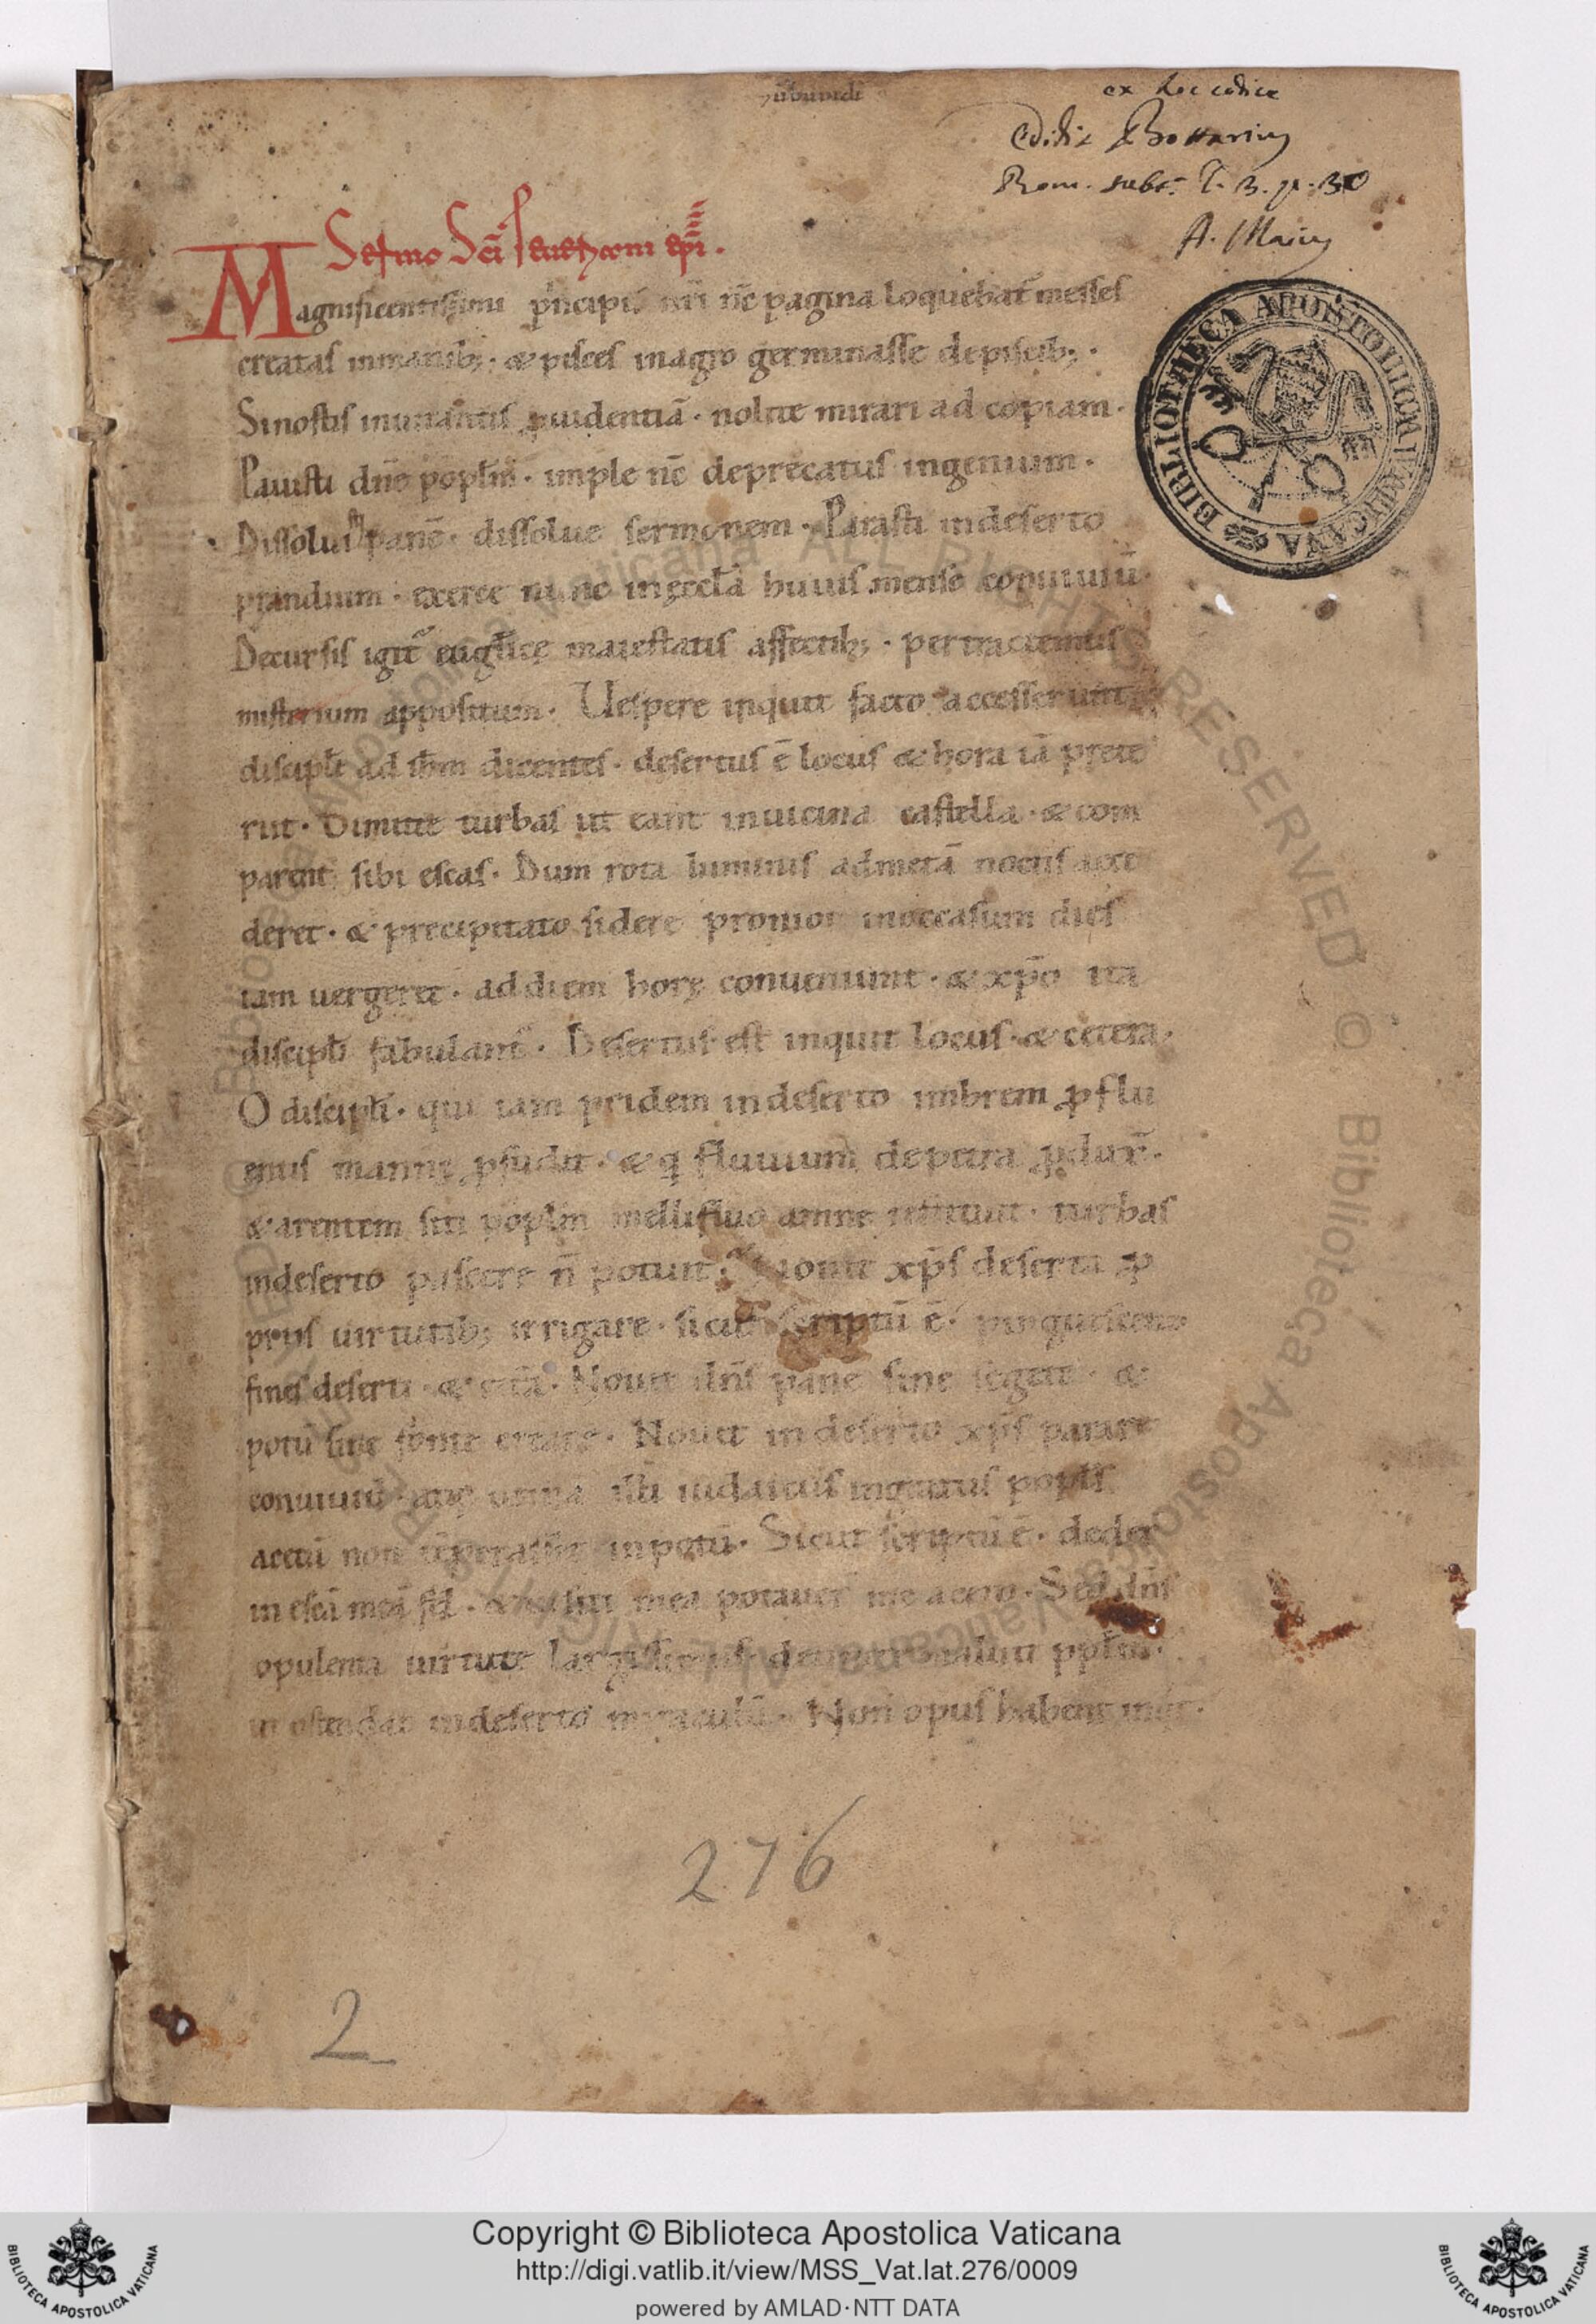 ex hoc codice
Edidit Bottarius
Rom. subt. T. 3. p. 30
A. Maius
Sermo Sc̄i epī.
Magnificentissimi prīncipis nr̄i nc̄ pagina loquebat̄ messes
creatas inmanib; · & pisces inagro germinasse depiscib; ·
Sinostis prouidentiā · nolite mirari ad copiam ·
Pauisti dn̄e popl̄m · imple nc̄ deprecatus ingenium ·
Dissoluisti panē · dissolue sermonem · Parasti indeserto
prandium · exerce nunc inęccl̄a huius mense conuiuiū ·
Decursis igit̄ euglīcę maiestatis affectib; · pertractemus
misterium appositum · Uespere inquit facto accesserunt
discipl̄i ad ih̄m dicentes · desertus ē locus & hora iā prete
rut · Dimitte turbas ut eant inuicina castella · & com
parent sibi escas · Dum rota luminis admetā noctis acce
deret · & precipitato sidere pronior inoccasum dies
iam uergeret · addiem horę conueniunt · & xp̄o ita
discipl̄i fabulant̄ · Desertus est inquit locus · & cetera ·
O discipl̄i · qui iam pridem indeserto imbrem ꝓflu
enis mannę · & q fluuium depetra
& arentem siti popl̄m mellifluo amne · turbas
indeserto pascere n̄ potuit · xp̄s deserta ꝓ
priis uirtutib; irrigare · sicut scriptū ē · pinguescent
fines deserti · & cet̄a · Nouit dn̄s panē sine segete · &
potū sine fonte creare · Nouit indeserto xp̄s parare
conuiuiū · illi iudaicus ingratus popl̄s
acetū non inpotū · Sicut scriptū ē · deder̄
in escā meā fel · & insiti mea potauer̄ me aceto · Sed dn̄s
opulenta uirtute ppl̄m ·
ut ostendat indeserto miraculū · Non opus habent inqt ·
276
2
BIBLIOTHECA APOSTOLICA VATICANA
Biblioteca Apostolica Vaticana ALL RIGHTS RESERVED ©
Copyright © Biblioteca Apostolica Vaticana
http://digi.vatlib.it/view/MSS_Vat.lat.276/0009
powered by AMLAD·NTT DATA
BIBLIOTECA APOSTOLICA VATICANA
BIBLIOTECA APOSTOLICA VATICANA